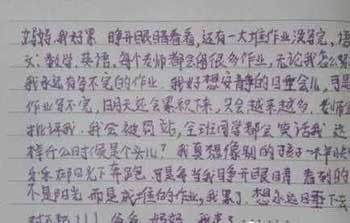 妈妈,我好累 睁开眼睛看着,还有一大堆作业没写完,语
文、数学、英语,每个老师都会留很多作业,无论我怎么写
我永远有写不完的作业。我好想安静的睡会儿,可是
作业写不完,明天还会累积下来,只会越来越多,老师会
批评我,我会被罚站,全班同学都会笑话我 这
样什么时候是个头儿? 我真想像别的孩子一样快快
乐乐在阳光下奔跑 可是每当我睁开眼睛 看到的
不是阳光 而是成堆的作业,我累了 想永远睡下去
对不起!!! 爸爸 妈妈 我